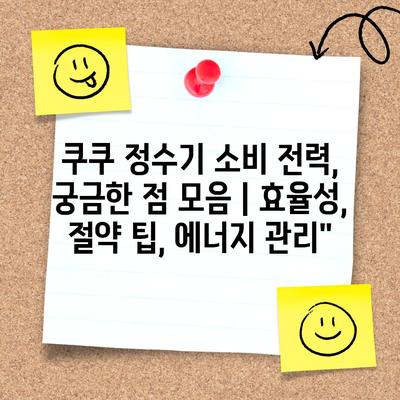 쿠쿠 정수기 소비 전력,
궁금한 점 모음 | 효율성,
절약 팁, 에너지 관리"